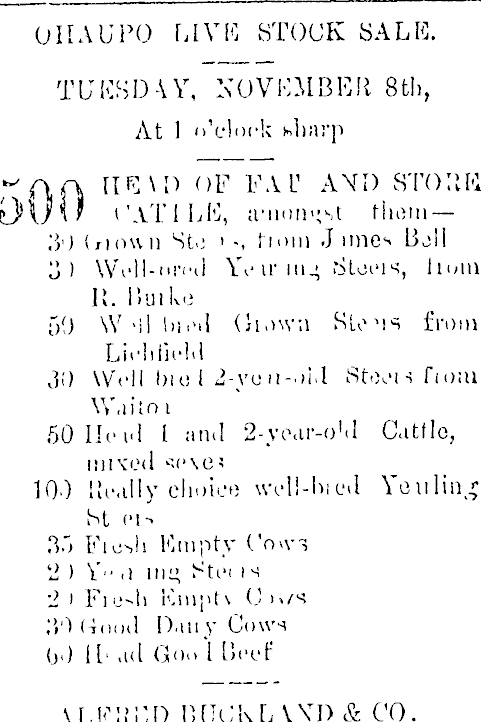 OHAUPO LIVE STOCK SALE.
TUESDAY, NOVEMBER 8th,
At 1 o'clock sharp
500 HEAD OF FAT AND STORE
CATTLE, amongst them—
30 Grown Steers, from James Bell
30 Well-bred Yearling Steers, from
R. Burke
50 Well bred Grown Steers from
Lichfield
30 Well bred 2-year-old Steers from
Waitoa
50 Head 1 and 2-year-old Cattle,
mixed sexes
100 Really choice well-bred Yearling
Steers
35 Fresh Empty Cows
20 Yearling Steers
20 Fresh Empty Cows
30 Good Dairy Cows
60 Head Good Beef
ALFRED BUCKLAND & CO.